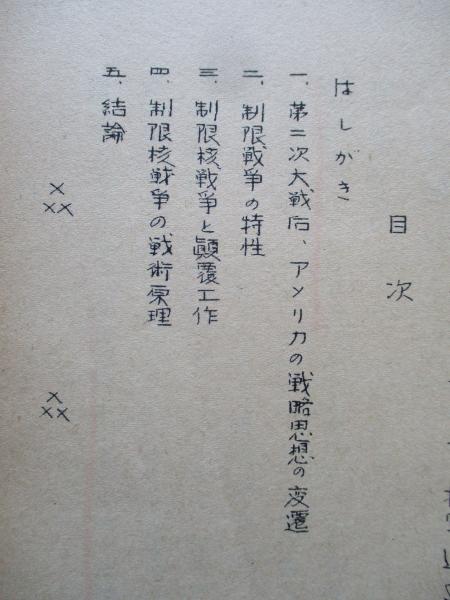 目次
はしがき
一、第二次大戦后、アメリカの戦略思想の変遷
二、制限戦争の特性
三、制限核戦争と顚覆工作
四、制限核戦争の戦術原理
五、結論
×
××
×
××